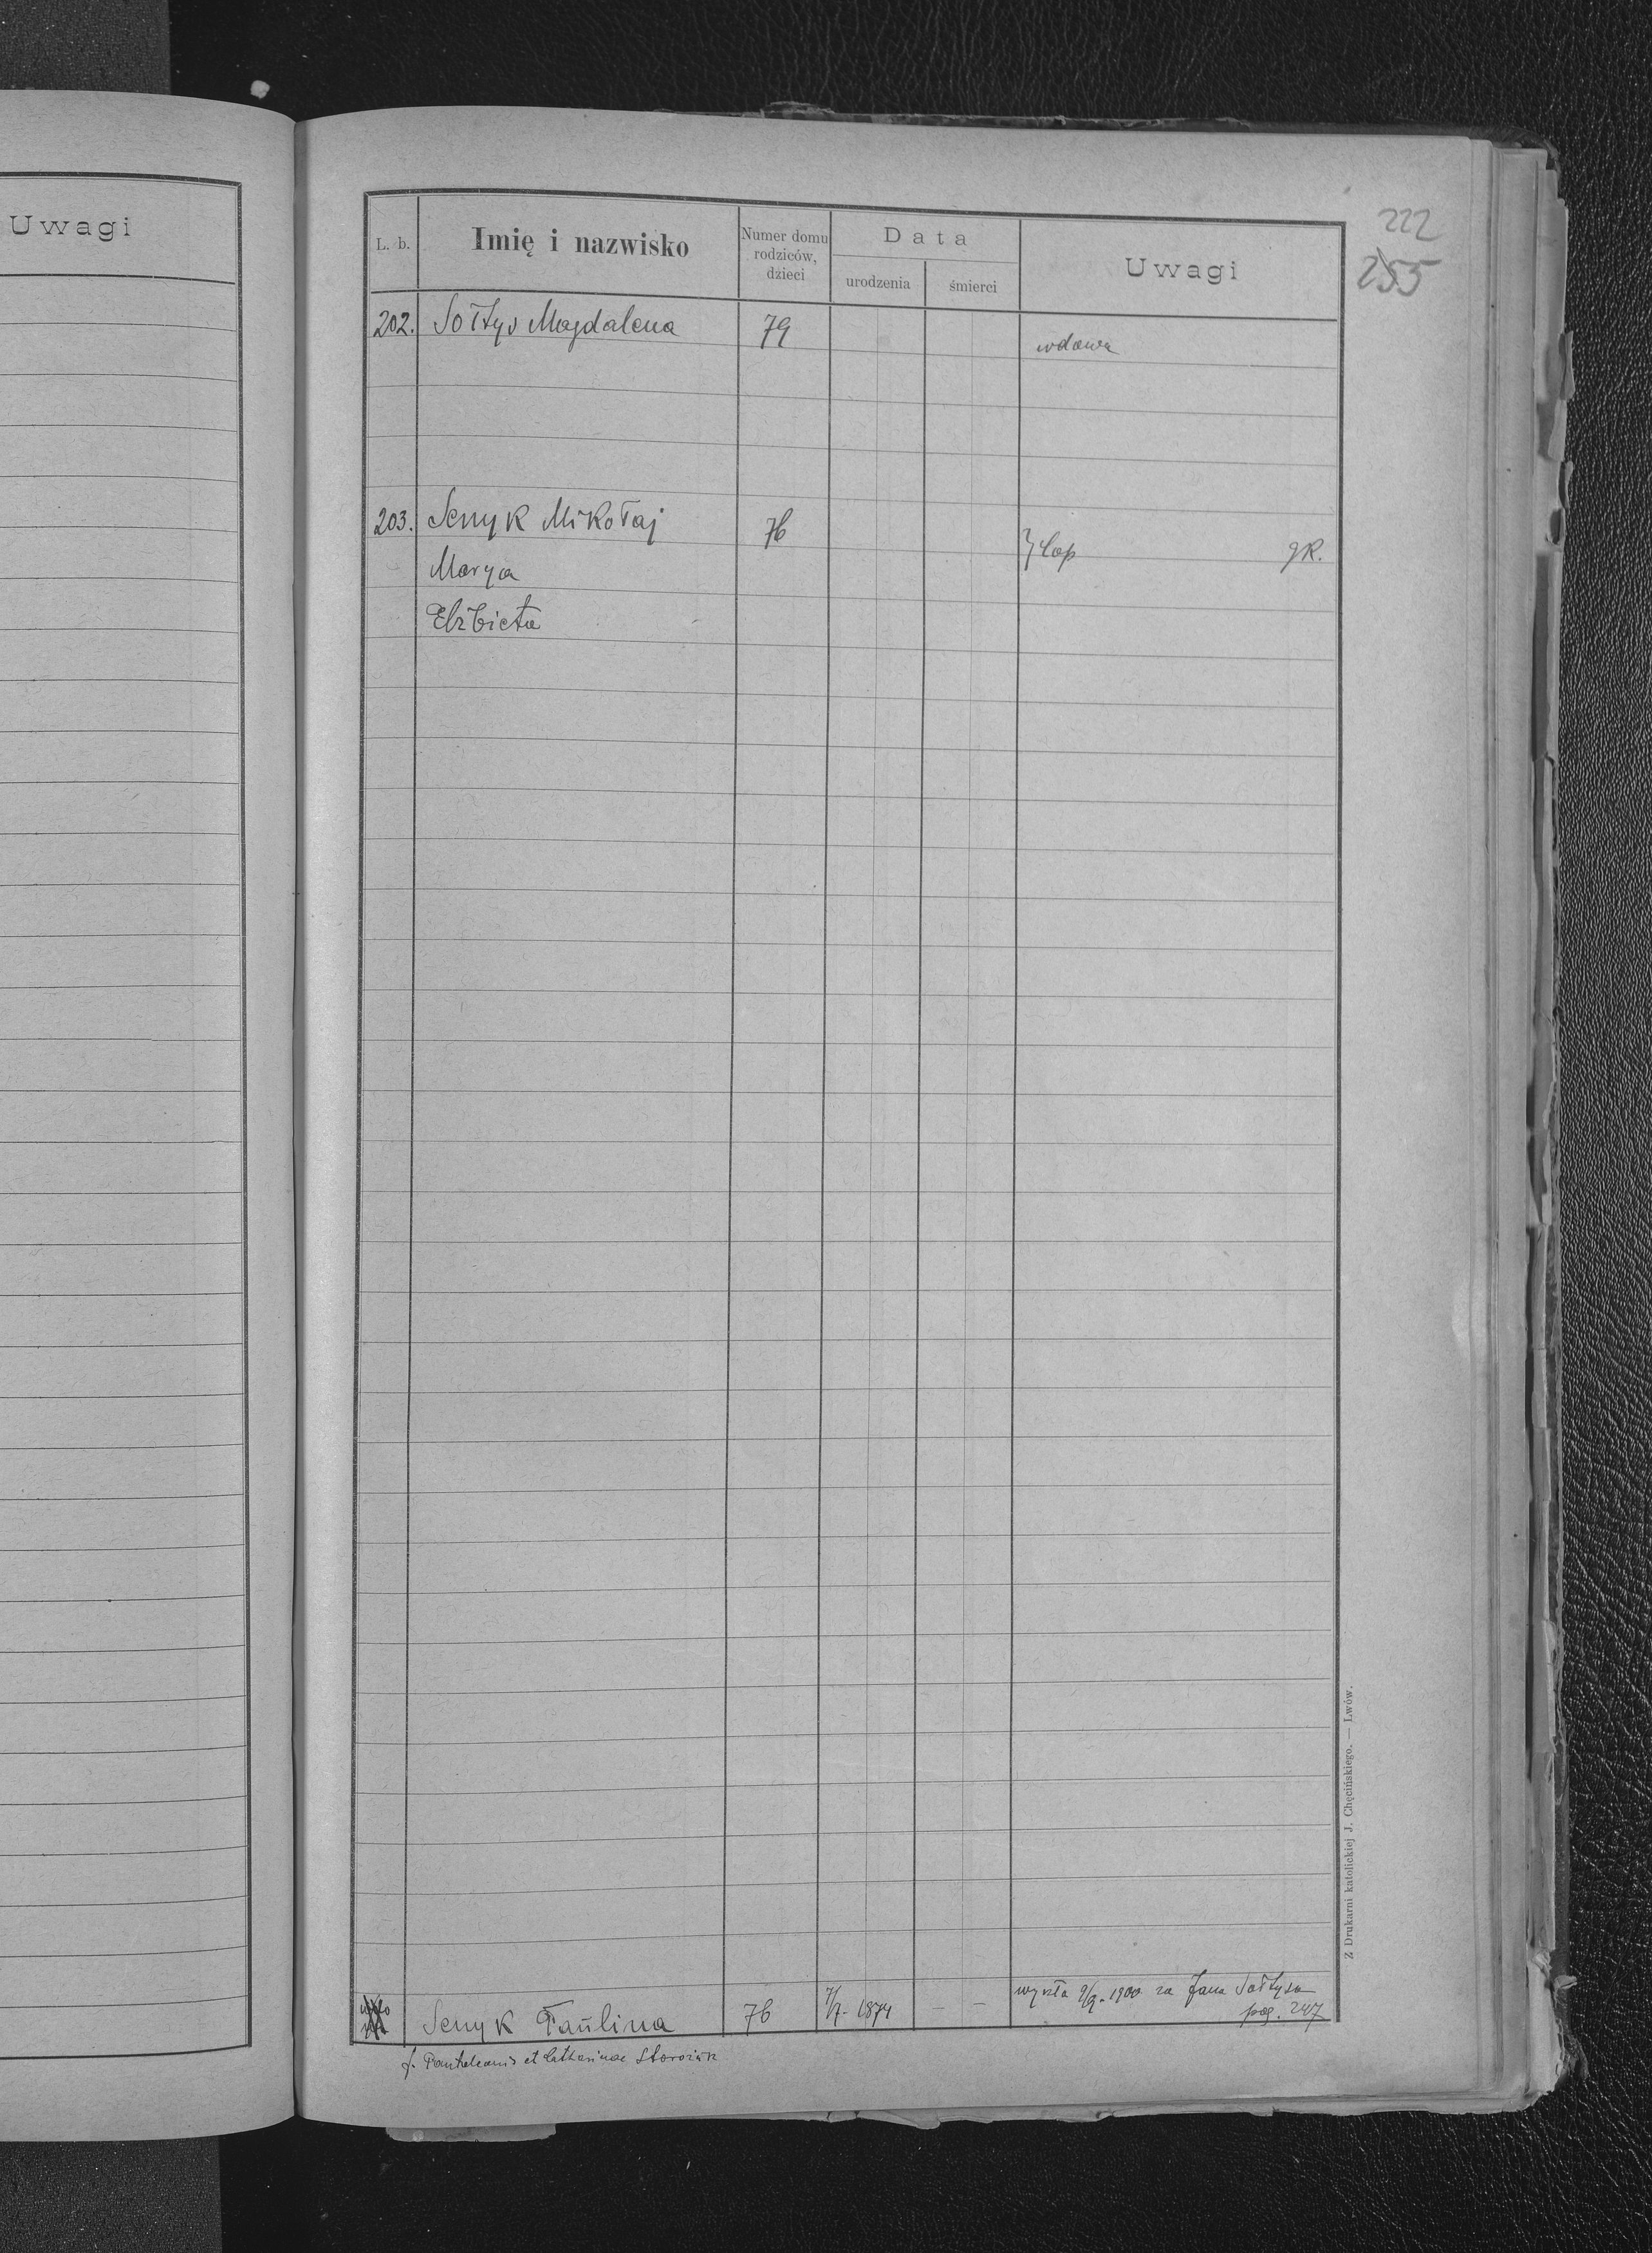 Uwagi
222
255
L. b. Imię i nazwisko Numer domu rodziców, dzieci Data urodzenia śmierci Uwagi
202. Sołtys Magdalena 79 wdowa
203. Senyk Mikołaj 76 gR.
Marya
Elżbieta
Senyk Paulina 76 7/7. 1874 — — wyszła 9/9. 1900 za Jana Sołtysa
pag. 247
f. Pantaleonis et Catharinae
Z Drukarni katolickiej J. Chęcińskiego. — Lwów.